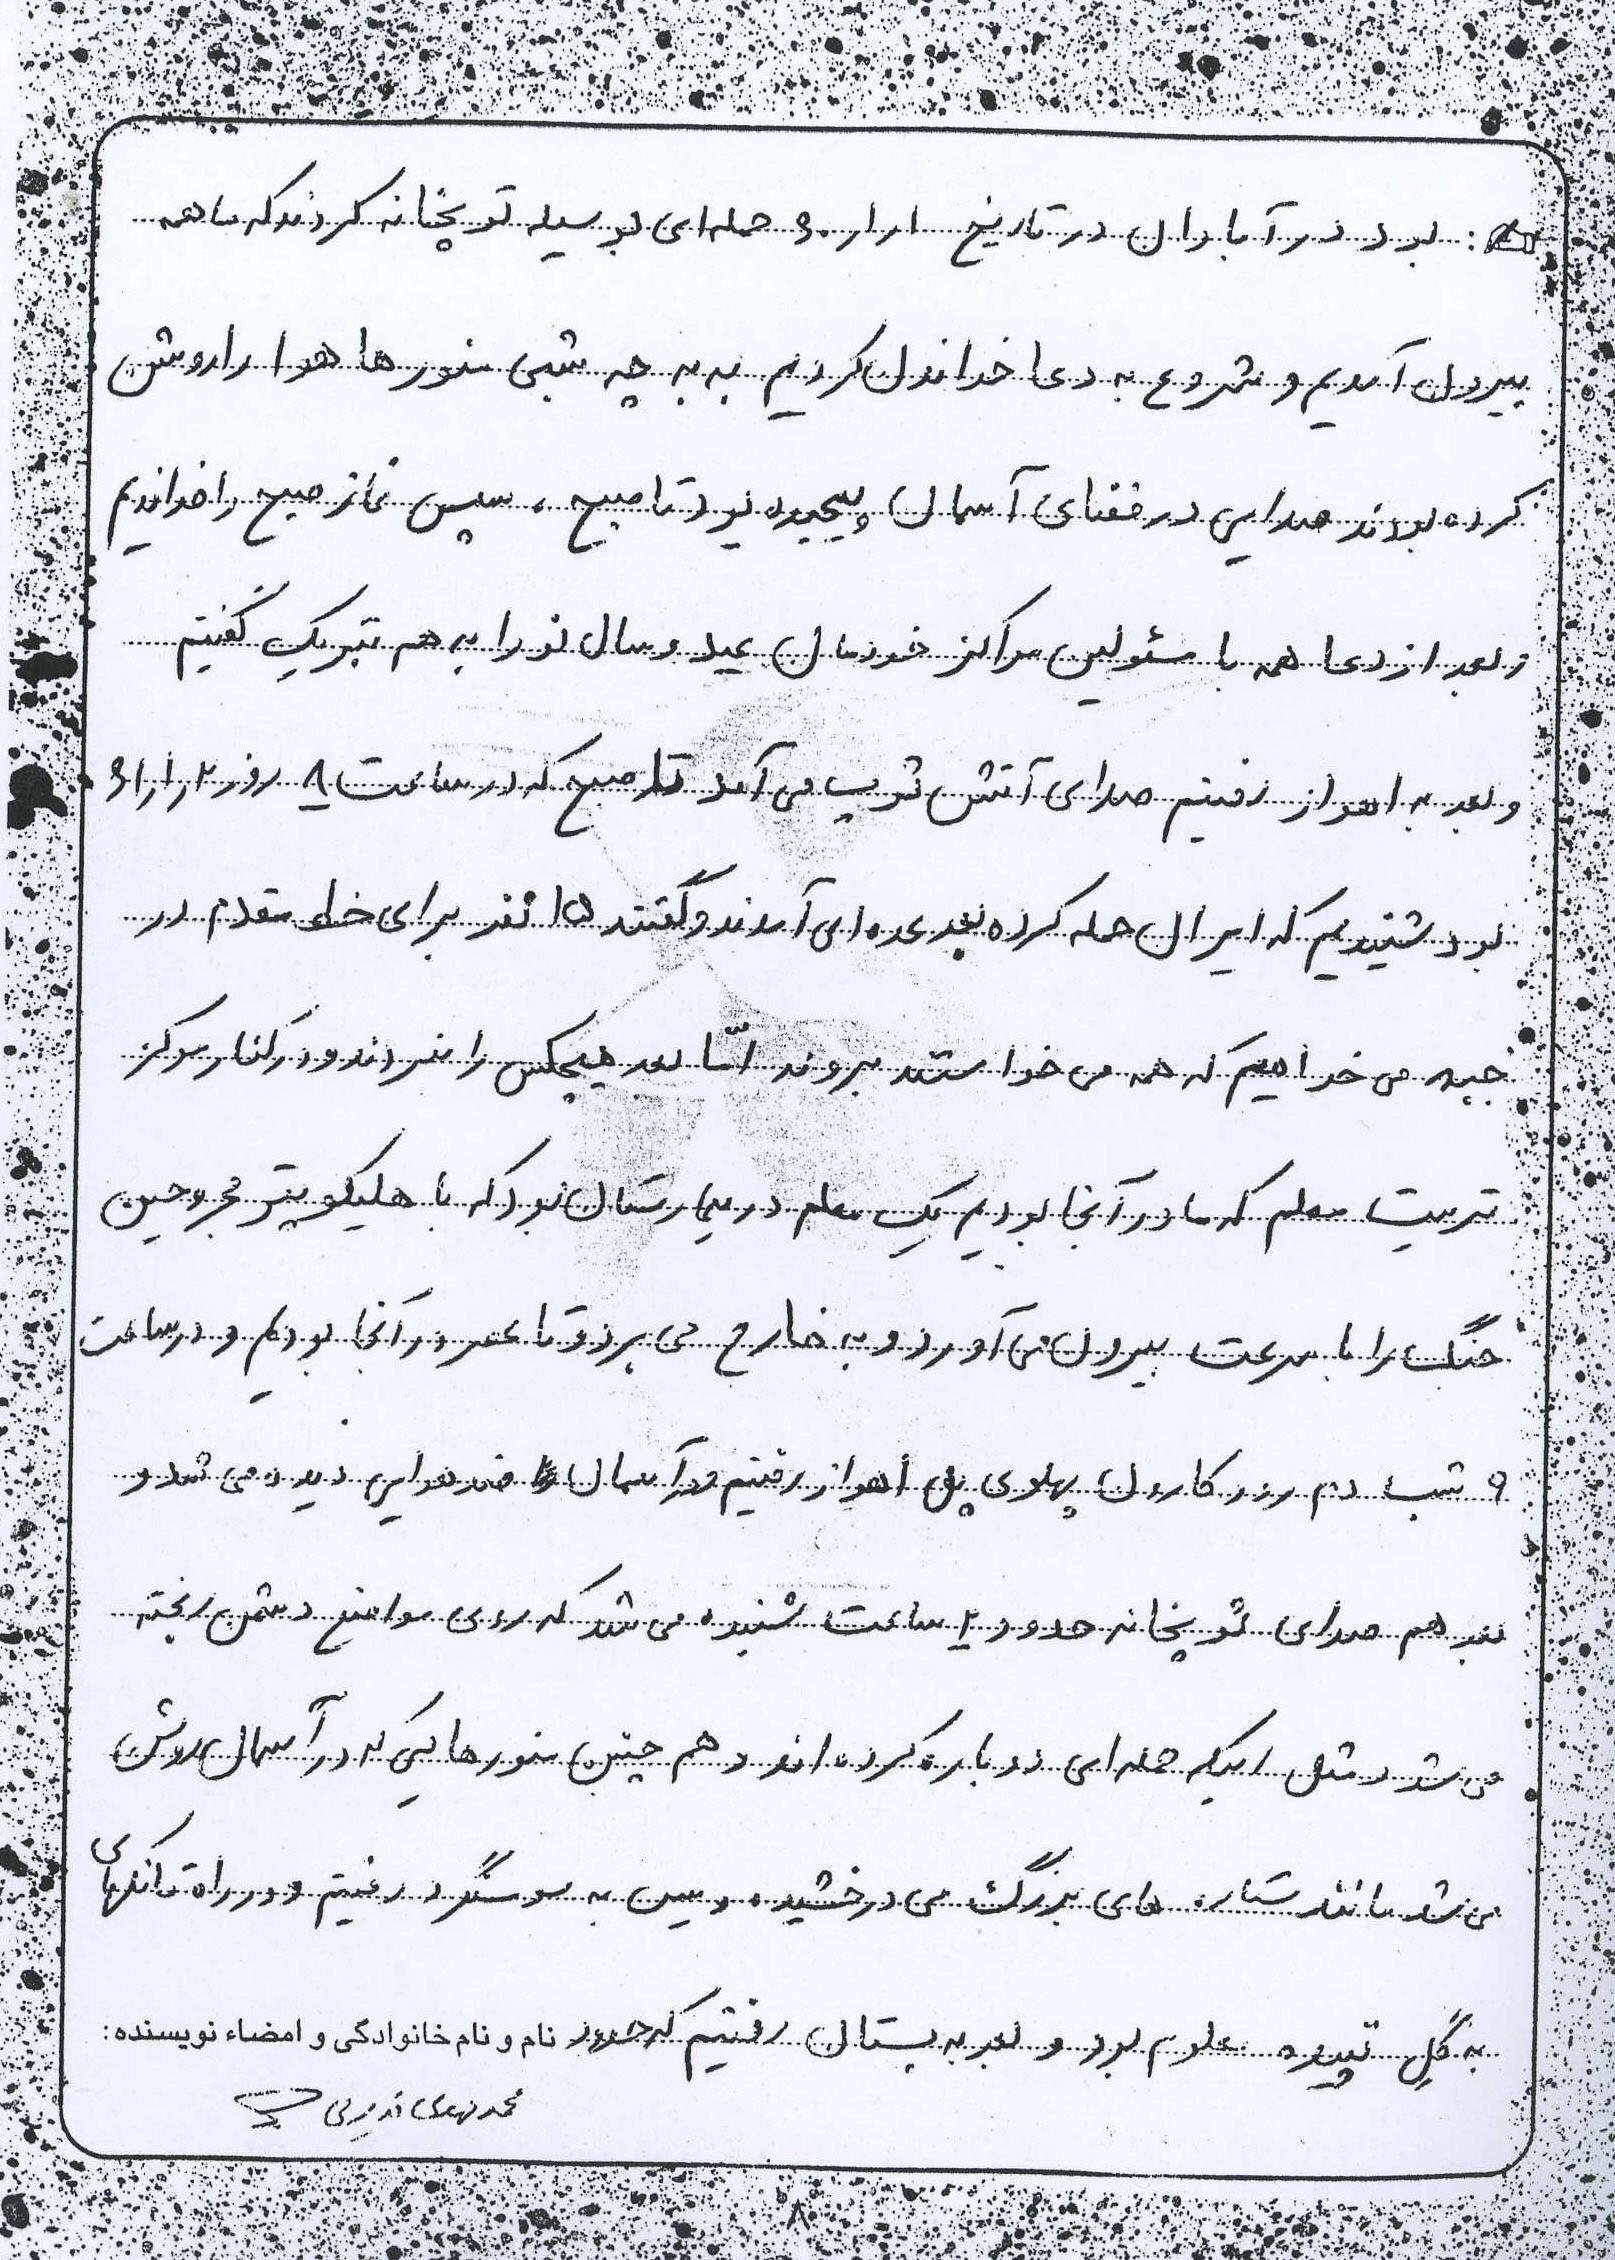 بود در آبادان در تاریخ ۱ر۱ر۶۰ حمله‌ای بوسیله توپخانه کردند که ما همه
بیرون آمدیم و شروع به دعا خواندن کردیم به به چه شبی منورها هوا را روشن
کرده بودند صدایی در فضای آسمان پیچیده بود تا صبح ، سپس نماز صبح را خواندیم
و بعد از دعا همه با مسئولین مراکز خودمان عید و سال نو را به هم تبریک گفتیم
و بعد به اهواز رفتیم صدای آتش توپ می آمد تا صبح که در ساعت ۸ روز ۲ر۱ر۶۱
بود شنیدیم که ایران حمله کرده بعد عده ای آمدند و گفتند ۱۵ نفر برای خط مقدم در
جبهه می خواهیم که همه می خواستند بروند امّا بعد هیچکس را نبردند و در کنار مرکز
تربیت معلم که ما در آنجا بودیم یک معلم در بیمارستان بود که با هلیکوپتر مجروحین
جنگ را با سرعت بیرون می آورند و به خارج می برند و تا عصر در آنجا بودیم و در ساعت
۹ شب دم رود کارون پهلوی پل اهواز رفتیم و در آسمان ضد هوایی دیده می شد و
بعد هم صدای توپخانه حدود ۲ ساعت شنیده می شد که روی مواضع دشمن ریخته
می شد مثل اینکه حمله ای دوباره کرده اند و هم چنین منورهایی که در آسمان روشن
می شد مانند ستاره های بزرگ می درخشیده و سپس به سوسنگرد رفتیم و در راه تانکهای
به گِل تپیده معلوم بود و بعد به بستان رفتیم که حدود نام و نام خانوادگی و امضاء نویسنده:
محمد مهدی
۸